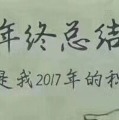 年终总结
是我2017年的积